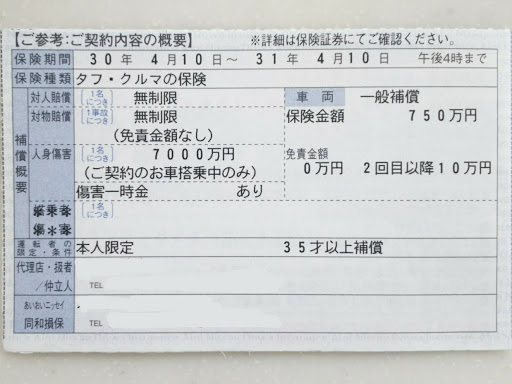 【ご参考：ご契約内容の概要】 ※詳細は保険証券にてご確認ください。
保険期間 30年 4月10日～ 31年 4月10日 午後4時まで
保険種類 タフ・クルマの保険
対人賠償 1名につき 無制限 車両 一般補償
対物賠償 1事故につき 無制限 保険金額 750万円
(免責金額なし)
補償概要
人身傷害 1名につき 7000万円 免責金額
(ご契約のお車搭乗中のみ) 0万円 2回目以降10万円
傷害一時金 あり
搭乗者 1名につき
傷害
運転者の限定・条件 本人限定 35才以上補償
代理店・扱者
／仲立人 TEL
あいおいニッセイ
同和損保 TEL